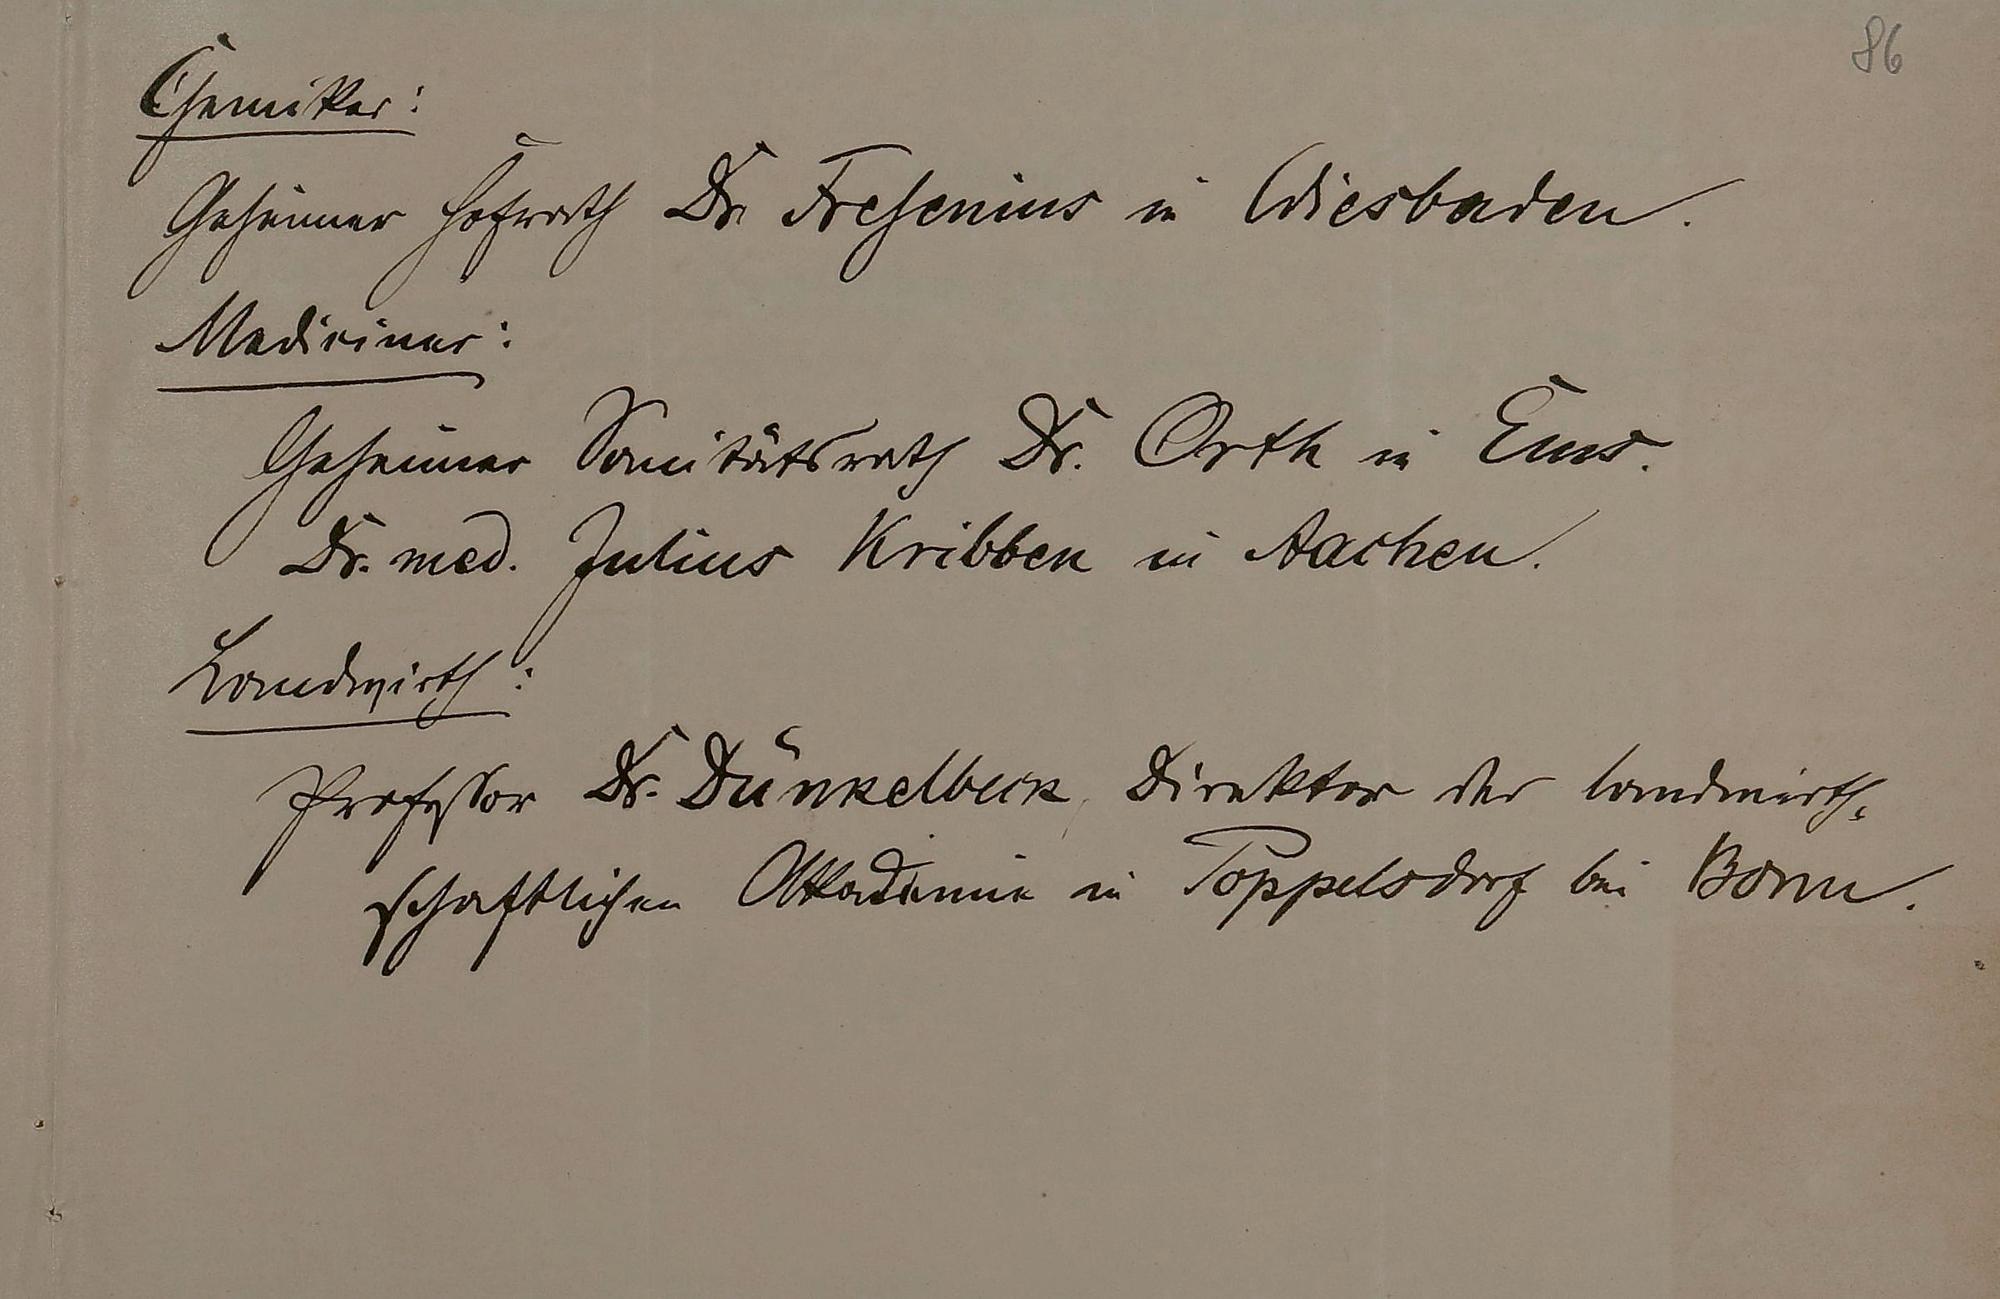 86
Chemiker:
Geheimer Hofrath Dr. Fresenius in Wiesbaden.
Mediciner:
Geheimer Sanitätsrath Dr. Orth in Ems.
Dr. med. Julius Kribben in Aachen.
Landwirth:
Professor Dr. Dünkelbeck, Direktor der landwirth-
schaftlichen Akademie in Poppelsdorf bei Bonn.